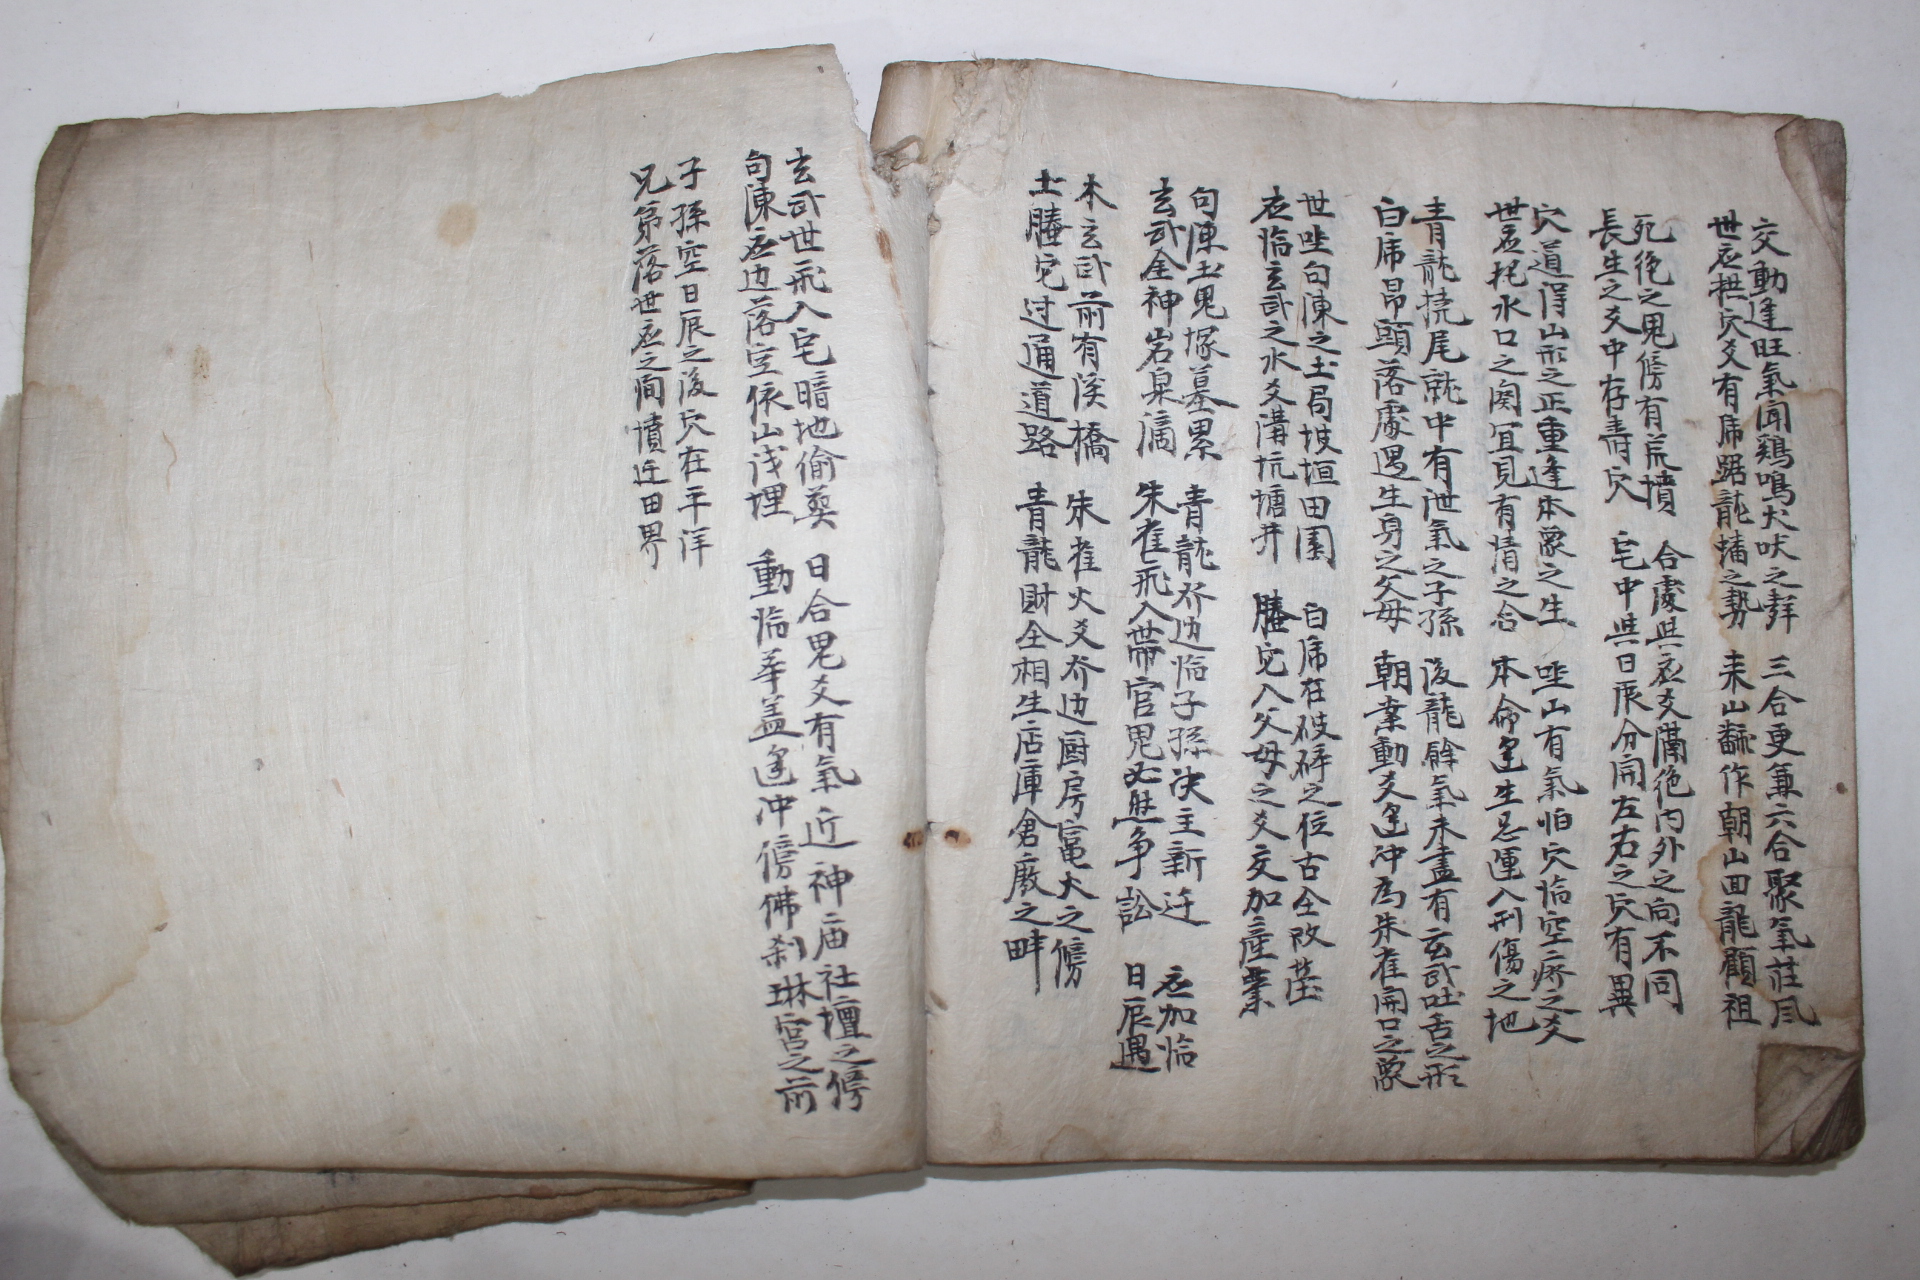 交動逢旺氣闻鷄鳴犬吠之群 三合更兼六合聚氣莊风
世应拱穴爻有席踞龍蟠之勢 来山飜作朝山回龍顧祖
死绝之鬼傍有荒墳 合處与应爻隔绝内外之向不同
長生之爻中存寿穴 宅中与日辰分開左右之穴有異
穴道淂山形之正重逢本象之生 坐山有氣怕穴临空療之爻
世应扥水口之関冝見有情之合 本命逢生忌運入刑傷之地
青龍撓尾就中有泄氣之子孫 後龍餘氣未盡有玄武吐舌之形
白席昻頭落處遇生身之父母 朝案動爻逢冲為朱雀開口之象
世坐句陳之土局坡垣田園 白席在破碎之位古全改莹
应临玄武之水爻溝坑塘井 螣它入父母之爻交加産業
句陳土鬼塚墓累累 青龍爻边临子孫决主新迁 应加临
玄武金神岩泉滴 朱雀飛入世帶官鬼必然争訟 日辰遇
木玄武前有溪橋 朱雀火爻爻边厨房竈大之傍
土螣它过通道路 青龍財全相生店庫倉廒之畔
玄武世飛入宅暗地偷葵 日合鬼爻有氣近神庙社壇之傍
句陳应边落空依山浅埋 動临華盖逢冲傍佛刹琳宫之前
子孫空日辰之後穴在平洋
兄弟落世应之间墳迁田界